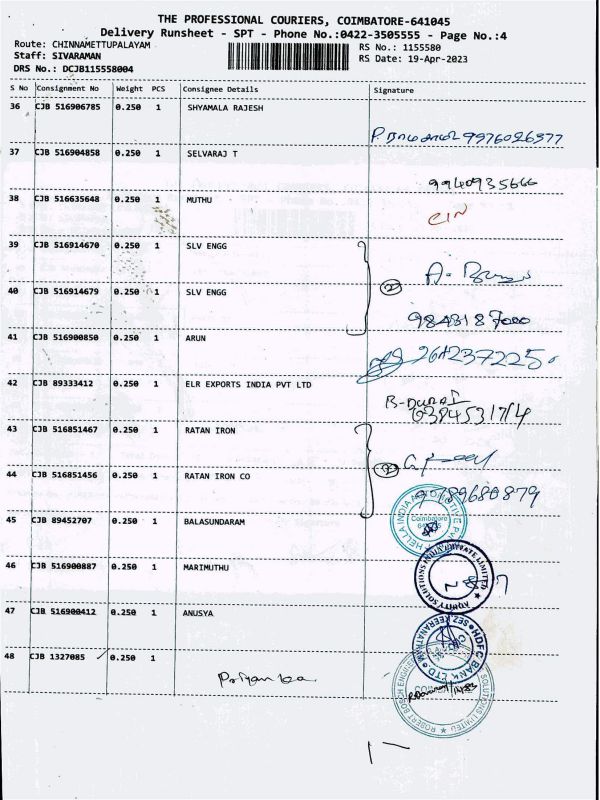 THE PROFESSIONAL COURIERS, COIMBATORE-641045
Delivery Runsheet - SPT - Phone No.:0422-3505555 - Page No.:4
Route: CHINNAMETTUPALAYAM
RS No.: 1155580
Staff: SIVARAMAN
RS Date: 19-Apr-2023
DRS No.: DCJB115558004
S No Consignment No Weight PCS Consignee Details Signature
36 CJB 516906785 0.250 1 SHYAMALA RAJESH
9976026377
37 CJB 516904858 0.250 1 SELVARAJ T
9940935666
38 CJB 516635648 0.250 1 MUTHU
39 CJB 516914670 0.250 1 SLV ENGG
2
40 CJB 516914679 0.250 1 SLV ENGG
9843187000
41 CJB 516900850 0.250 1 ARUN
42 CJB 89333412 0.250 1 ELR EXPORTS INDIA PVT LTD
43 CJB 516851467 0.250 1 RATAN IRON
44 CJB 516851456 0.250 1 RATAN IRON CO
45 CJB 89452707 0.250 1 BALASUNDARAM
HELLA INDIA AUTOMOTIVE PVT
Coimbatore
46 CJB 516900887 0.250 1 MARIMUTHU
47 CJB 516900412 0.250 1 ANUSYA
HDFC BANK LTD
48 CJB 1327085 0.250 1
Priyanka
ROBERT BOSCH ENGINEERING SOLUTIONS LIMITED